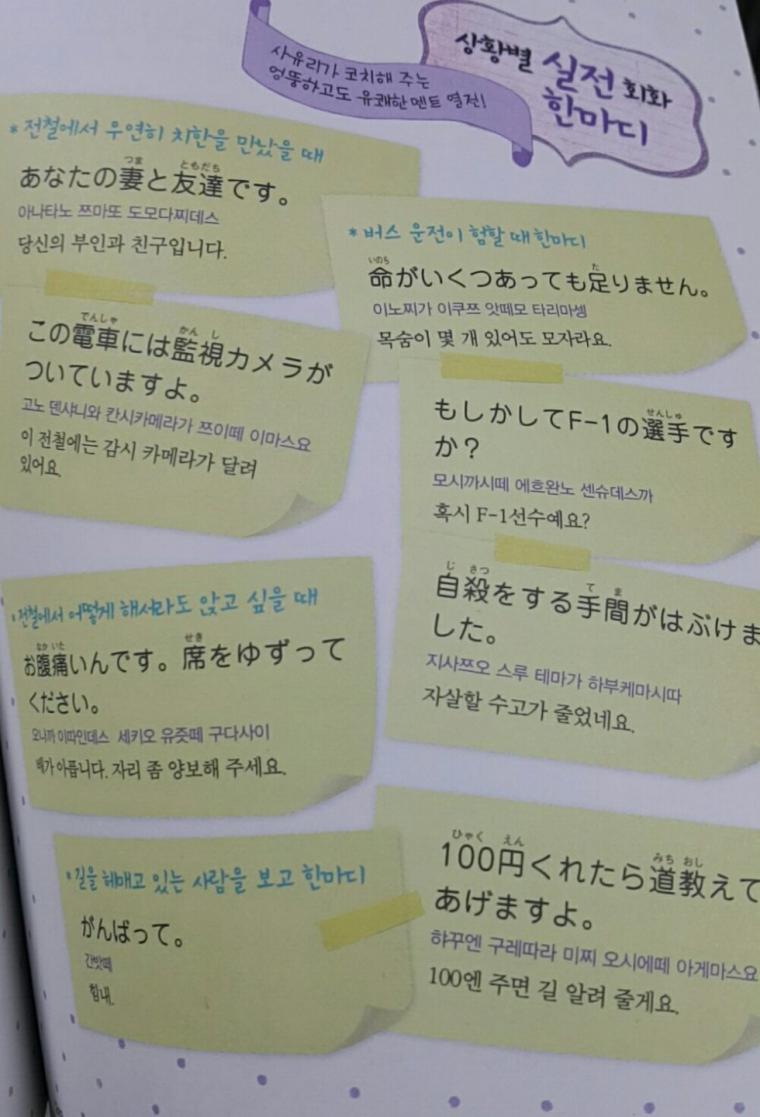 사유리가 코치해 주는
엉뚱하고도 유쾌한 멘트 열전!
상황별 실전 회화
한마디
*전철에서 우연히 치한을 만났을 때
つま ともだち
あなたの妻と友達です。
아나타노 쯔마또 도모다찌데스
당신의 부인과 친구입니다.
でんしゃ かん し
この電車には監視カメラが
ついていますよ。
고노 덴샤니와 칸시카메라가 쯔이떼 이마스요
이 전철에는 감시 카메라가 달려
있어요.
*버스 운전이 험할 때 한마디
いのち た
命がいくつあっても足りません。
이노찌가 이쿠쯔 앗떼모 타리마셍
목숨이 몇 개 있어도 모자라요.
せんしゅ
もしかしてF-1の選手です
か？
모시까시떼 에흐완노 센슈데스까
혹시 F-1선수예요?
じ さつ て ま
自殺をする手間がはぶけま
した。
지사쯔오 스루 테마가 하부케마시따
자살할 수고가 줄었네요.
*전철에서 어떻게 해서라도 앉고 싶을 때
なか いた せき
お腹痛いんです。席をゆずって
ください。
오나까 이따인데스 세키오 유즛떼 구다사이
배가 아픕니다. 자리 좀 양보해 주세요.
*길을 헤매고 있는 사람을 보고 한마디
がんばって。
간밧떼
힘내.
ひゃく えん みち おし
100円くれたら道教えて
あげますよ。
햐꾸엔 구레따라 미찌 오시에떼 아게마스요
100엔 주면 길 알려 줄게요.